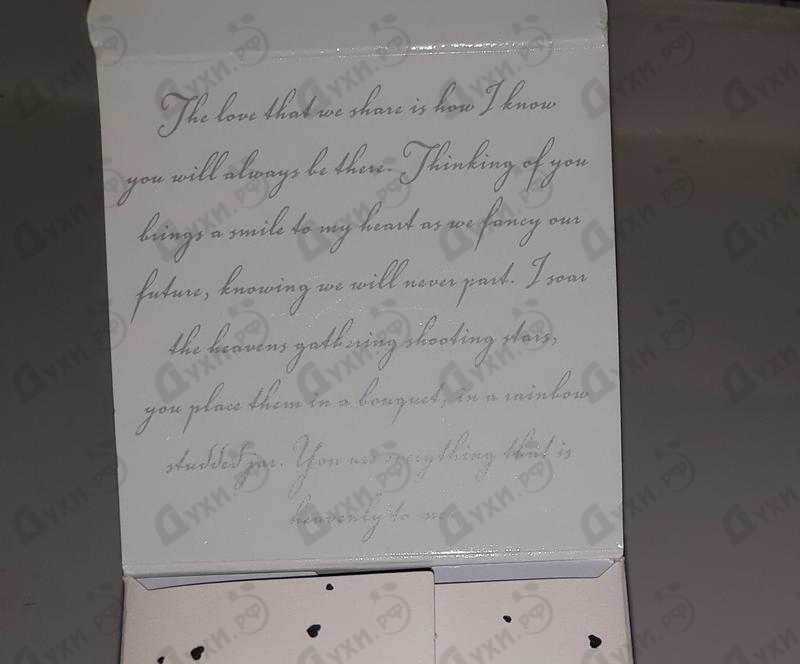 The love that we share is how I know
you will always be there. Thinking of you
brings a smile to my heart as we fancy our
future, knowing we will never part. I soar
the heavens gathering shooting stars,
you place them in a bouquet, in a rainbow
studded jar. You are everything that is
heavenly to me.
Духи.рф